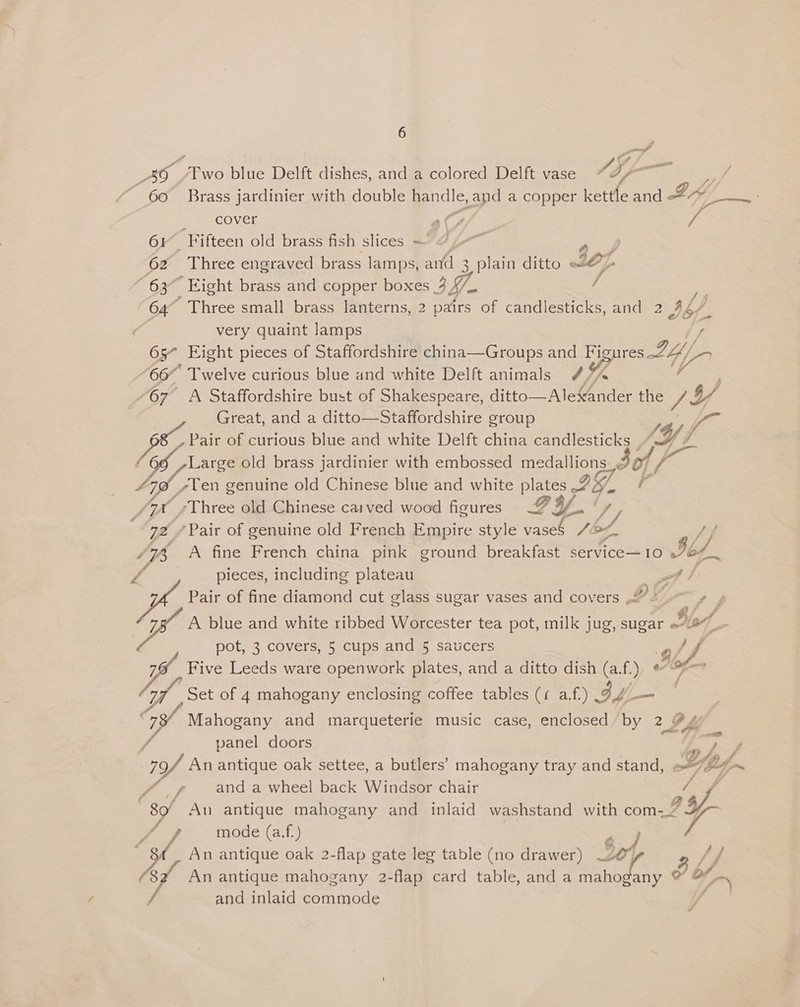 6
59 Two blue Delft dishes, and a colored Delft vase
60 Brass jardinier with double handle, and a copper kettle and
cover
61 Fifteen old brass fish slices
62 Three engraved brass lamps, and 3 plain ditto
63 Eight brass and copper boxes
64 Three small brass lanterns, 2 pairs of candlesticks, and 2
very quaint lamps
65 Eight pieces of Staffordshire china—Groups and Figures
66 Twelve curious blue and white Delft animals
67 A Staffordshire bust of Shakespeare, ditto—Alexander the
Great, and a ditto—Staffordshire group
68 Pair of curious blue and white Delft china candlesticks
69 Large old brass jardinier with embossed medallions
70 Ten genuine old Chinese blue and white plates
71 Three old Chinese carved wood figures
72 Pair of genuine old French Empire style vases
73 A fine French china pink ground breakfast service—10
pieces, including plateau
74 Pair of fine diamond cut glass sugar vases and covers
75 A blue and white ribbed Worcester tea pot, milk jug, sugar
pot, 3 covers, 5 cups and 5 saucers
76 Five Leeds ware openwork plates, and a ditto dish (a.f.)
77 Set of 4 mahogany enclosing coffee tables (1 a.f.)
78 Mahogany and marqueterie music case, enclosed by 2
panel doors
79 An antique oak settee, a butlers' mahogany tray and stand,
and a wheel back Windsor chair
80 An antique mahogany and inlaid washstand with com-
mode (a.f.)
81 An antique oak 2-flap gate leg table (no drawer)
82 An antique mahogany 2-flap card table, and a mahogany
and inlaid commode